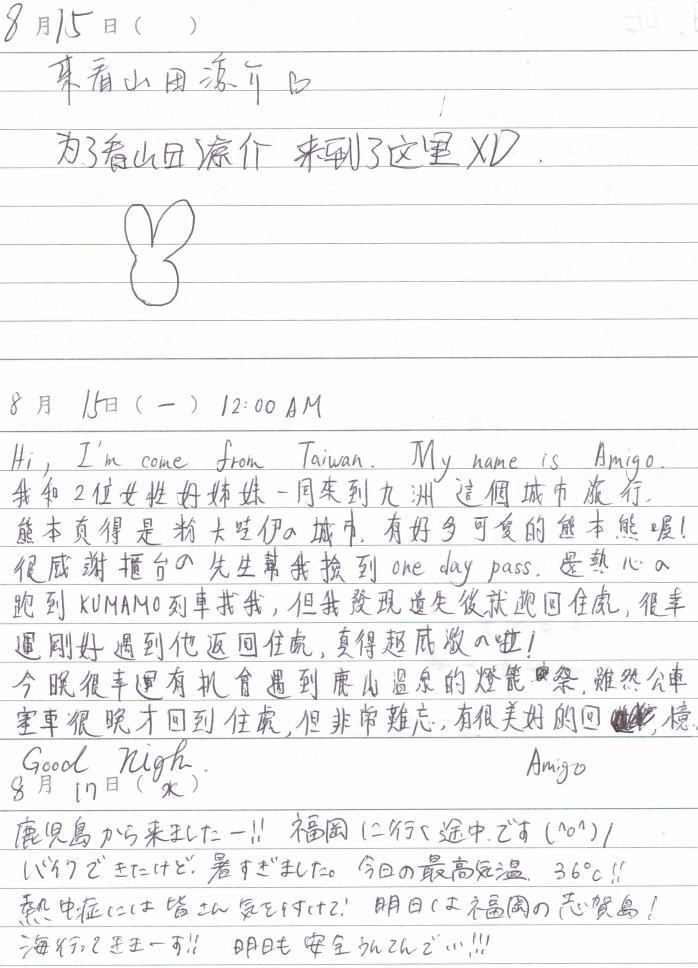 8月15日( )
来看山田涼介♡
为了看山田凉介 来到了这里XD.
8月 15日(一) 12:00 AM
Hi, I'm come from Taiwan. My name is Amigo.
我和2位女性好姊妹一同來到九洲 這個城市旅行.
熊本真得是粉大哇伊の城市. 有好多可愛的熊本熊喔!
很感謝櫃台の先生幫我撿到one day pass, 還熱心の
跑到KUMAMO列車找我, 但我發現遺失後就跑回住處, 很幸
運剛好遇到他返回住處, 真得超感激の啦!
今晚很幸運有机會遇到鹿山溫泉的燈籠祭, 雖然公車
塞車很晚才回到住處, 但非常難忘, 有很美好的回憶.
Good Nigh.
Amigo
8月 17日(水)
鹿児島から来ましたー!! 福岡に行く途中です(^o^)/
バイクできたけど、暑すぎました。今日の最高気温 36℃!!
熱中症には皆さん気を付けて! 明日は福岡の志賀島!
海行ってきまーす!! 明日も安全うんてんで…!!!